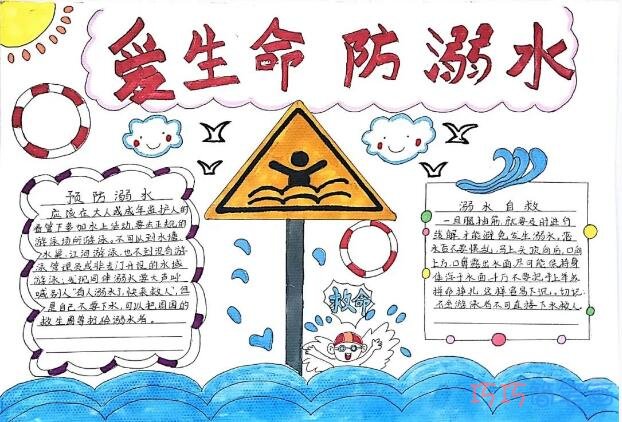 爱生命 防溺水
预防溺水
应该在大人或成年监护人的
看管下参加水上活动,要去正规的
游泳场所游泳,不可以到水塘、
水渠、江河游泳,也不到没有游
泳管理员或非专门开设的水域
游泳;发现同伴溺水要大声叫
喊别人"有人溺水了,快来救人",但
是自己不要下水,可以把周围的
救生圈等材给溺水者。
溺水自救
一旦腿抽筋,就要及时进行
缓解才能避免发生溺水,落
水后不要慌乱,马上头顶向后,口向
上方,口鼻露出水面尽可能保持身
住于水面,千万不要把手上举或
拼命挣扎,这样容易下沉。切记:
不会游泳者不可直接下水救人。
救命
巧巧